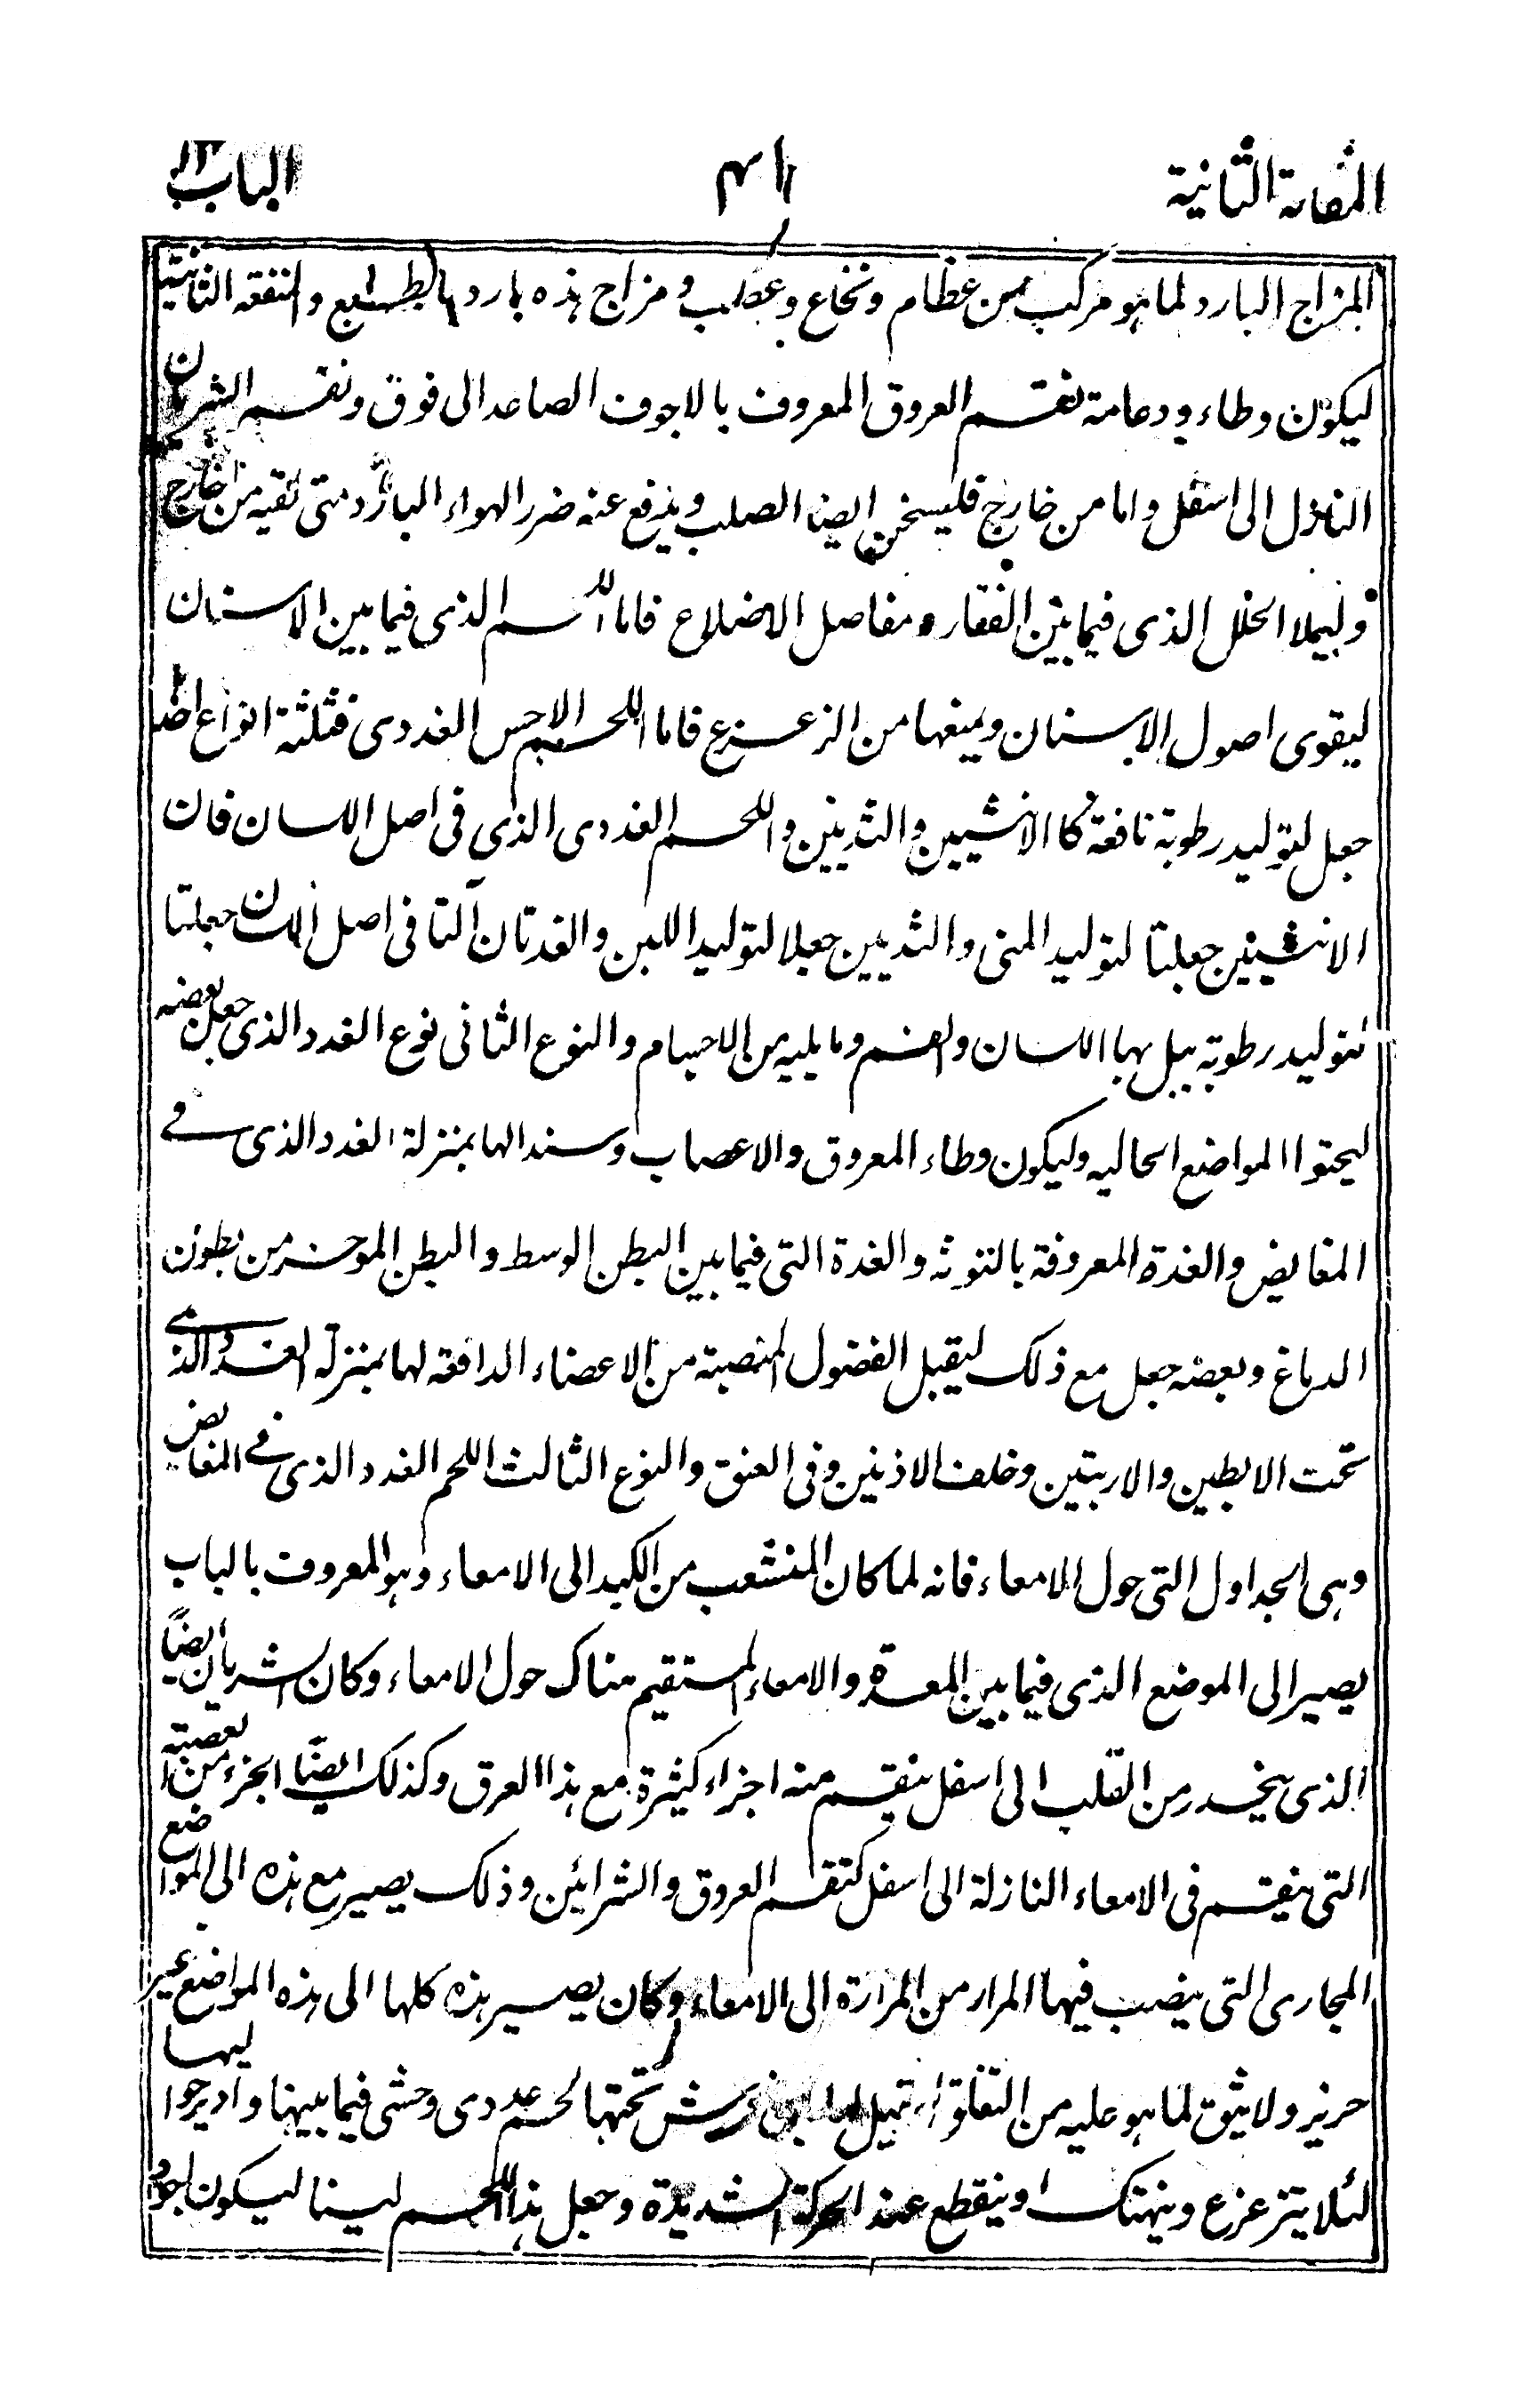 المقالة الثانية
الباب
المزاج البارد لما هو مركب من عظام ونخاع وعصب ومزاج هذه بارد بالطبع والمنفعة الثانية
ليكون وطاء ودعامة تقسم العروق المعروف بالاجوف الصاعد الى فوق وتقسم الشريان
النازل الى اسفل واما من خارج فليسخن ايضا الصلب ويدفع عنه ضرر الهواء البارد متى لقيه من خارج
وليملا الخلل الذى فيما بين الفقار ومفاصل الاضلاع فاما اللحم الذى فيما بين الاسنان
ليقوى اصول الاسنان ويمنعها من الزعزع فاما اللحم الغددى فثلثة انواع
جعل لتوليد رطوبة نافعة كالانثيين والثديين واللحم الغددى الذى فى اصل اللسان فان
الانثيين جعلتا لتوليد المنى والثديين جعلا لتوليد اللبن والغدتان آلتا فى اصل اللسان جعلتا
لتوليد رطوبة يبل بها اللسان والفم وما يليه من الاجسام والنوع الثانى نوع الغدد الذى جعل بعضه
ليحتوا المواضع الخاليه وليكون وطاء المعروق والاعصاب وسندا لها بمنزلة الغدد الذى فى
المغابض والغدة المعروفة بالتوثه والغدة التى فيما بين البطن الوسط والبطن الموخر من بطون
الدماغ وبعضه جعل مع ذلك ليقبل الفضول المنصبة من الاعضاء الدافعة لها بمنزلة الغدد الذى
تحت الابطين والاربتين وخلف الاذنين وفى العنق والنوع الثالث اللحم الغدد الذى فى المغابض
وهى الجداول التى حول الامعاء فانه لما كان المنشعب من الكبد الى الامعاء وهو المعروف بالباب
يصير الى الموضع الذى فيما بين المعدة والامعاء المستقيم هناك حول الامعاء وكان الشريان ايضاً
الذى ينحدر من القلب الى اسفل ينقسم منه اجزاء كثيرة مع هذا العرق وكذلك ايضاً الجزء من العصبة
التى ينقسم فى الامعاء النازلة الى اسفل كتقسم العروق والشرائين وذلك يصير مع هذه الى المواضع
المجارى التى ينصب فيها المرار من المرارة الى الامعاء وكان يصير هذه كلها الى هذه المواضع غير
حريز ولا ثيق لما هو عليه من التعلق فرش تحتها لحم غددى وحشى فيما بينها وادير حواليها
لئلا يتزعزع وينهتك او ينقطع عند الحركة الشديدة وجعل هذا اللحم لينا ليكون اجود